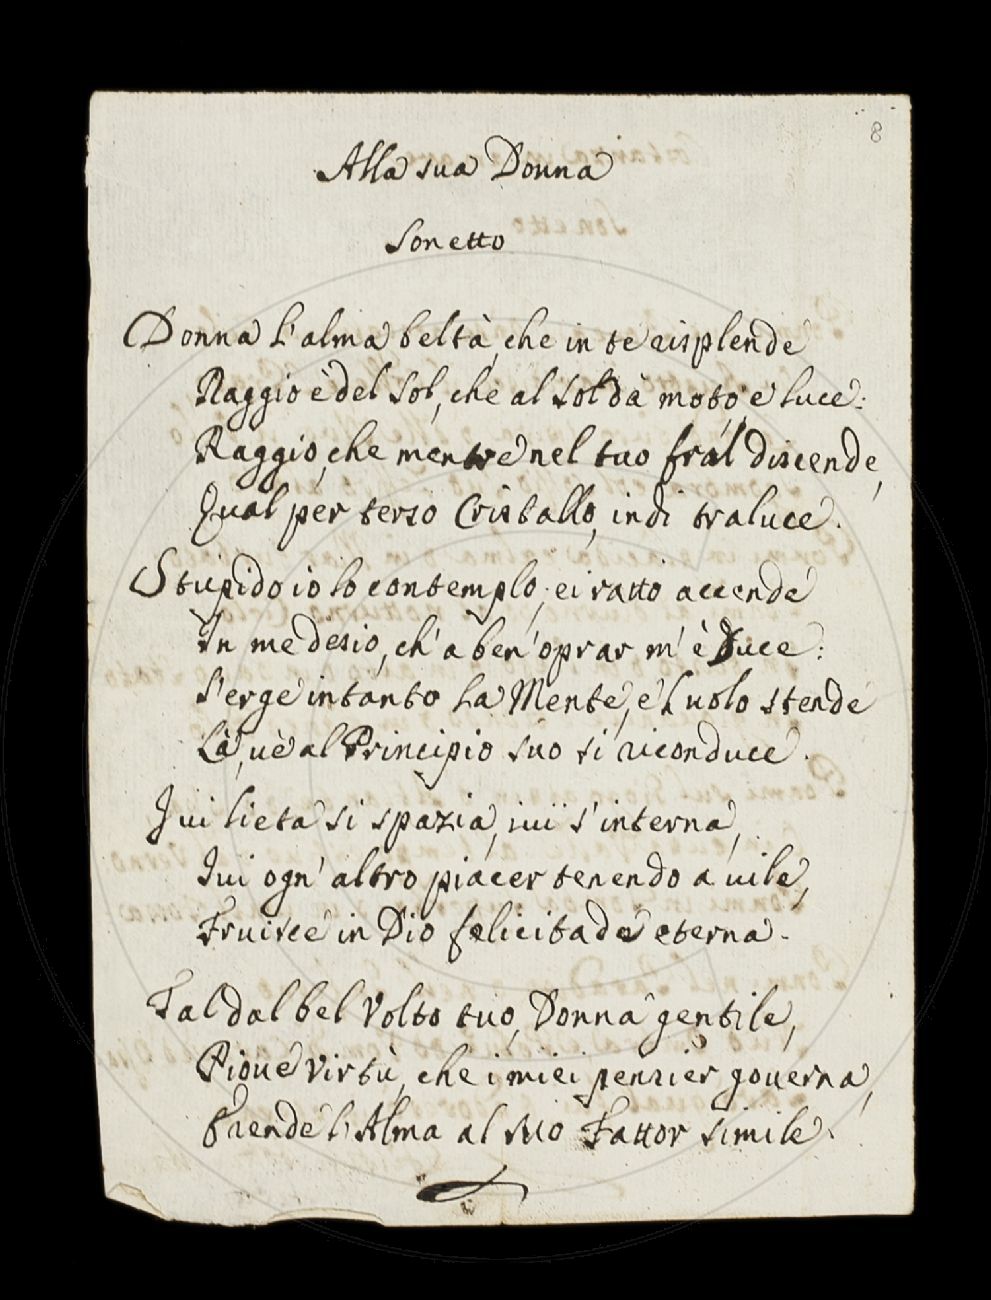 8
Alla sua Donna
Sonetto
Donna l'alma beltà, che in te risplende
Raggio è del Sol, che al Sol dà moto, e luce:
Raggio, che mentre nel tuo fral discende,
Qual per terso Cristallo, indi traluce.
Stupido io lo contemplo; ei ratto accende
In me desio, ch'a ben'oprar m'è Duce:
S'erge intanto la Mente, e'l uolo stende
Là, 'uè al Principio suo si riconduce.
Iui lieta si spazia, iui s'interna,
Iui ogn'altro piacer tenendo a uile,
Fruisce in Dio felicitade eterna.
Tal dal bel Volto tuo, Donna gentile,
Pioue Virtù, che i miei pensier gouerna,
E rende l'Alma al suo Fattor simile.